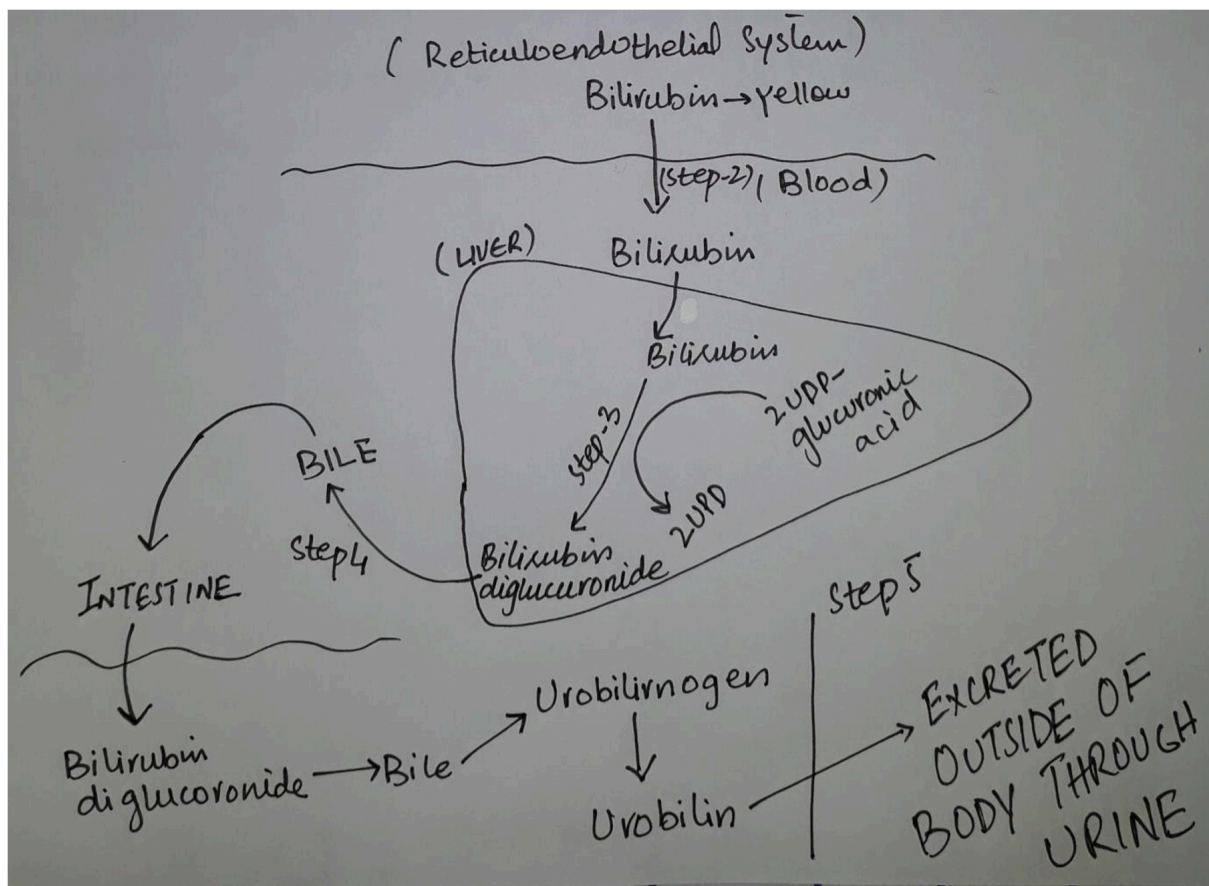 (Reticuloendothelial System)
Bilirubin→yellow
(Step-2) (Blood)
(LIVER)
Bilirubin
Bilirubin
2UDP-
glucuronic
acid
Step-3
2UPD
Bilirubin
diglucuronide
BILE
Step4
INTESTINE
Bilirubin
diglucoronide →Bile
Urobilirnogen
Urobilin
Step 5
EXCRETED
OUTSIDE OF
BODY THROUGH
URINE